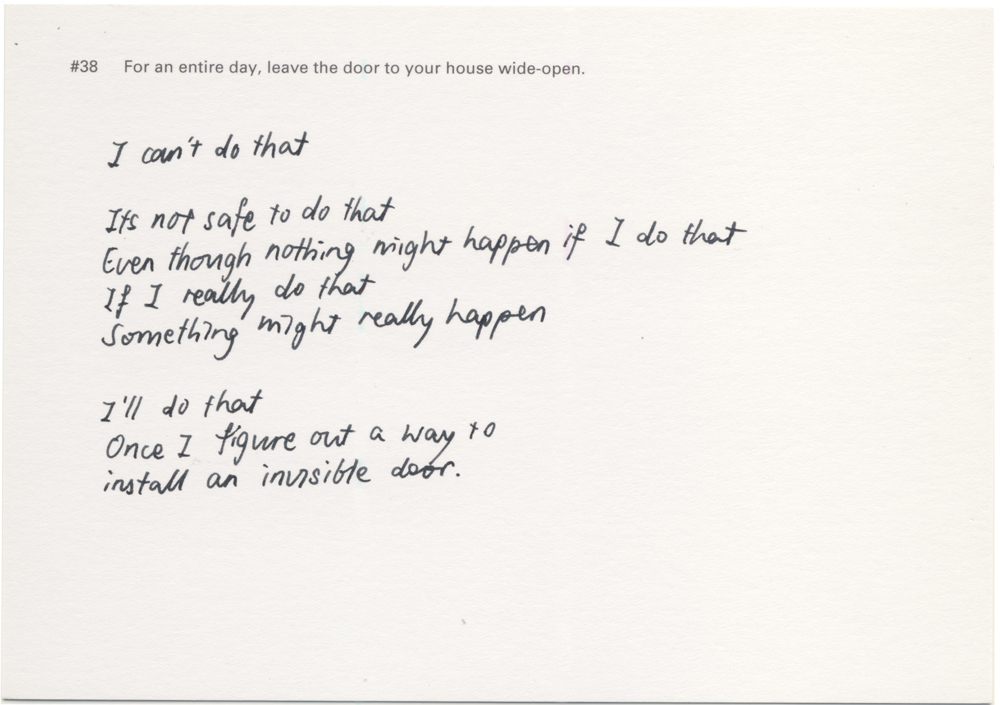 #38 For an entire day, leave the door to your house wide-open.
I can't do that
Its not safe to do that
Even though nothing might happen if I do that
If I really do that
Something might really happen
I'll do that
Once I figure out a way to
install an invisible door.